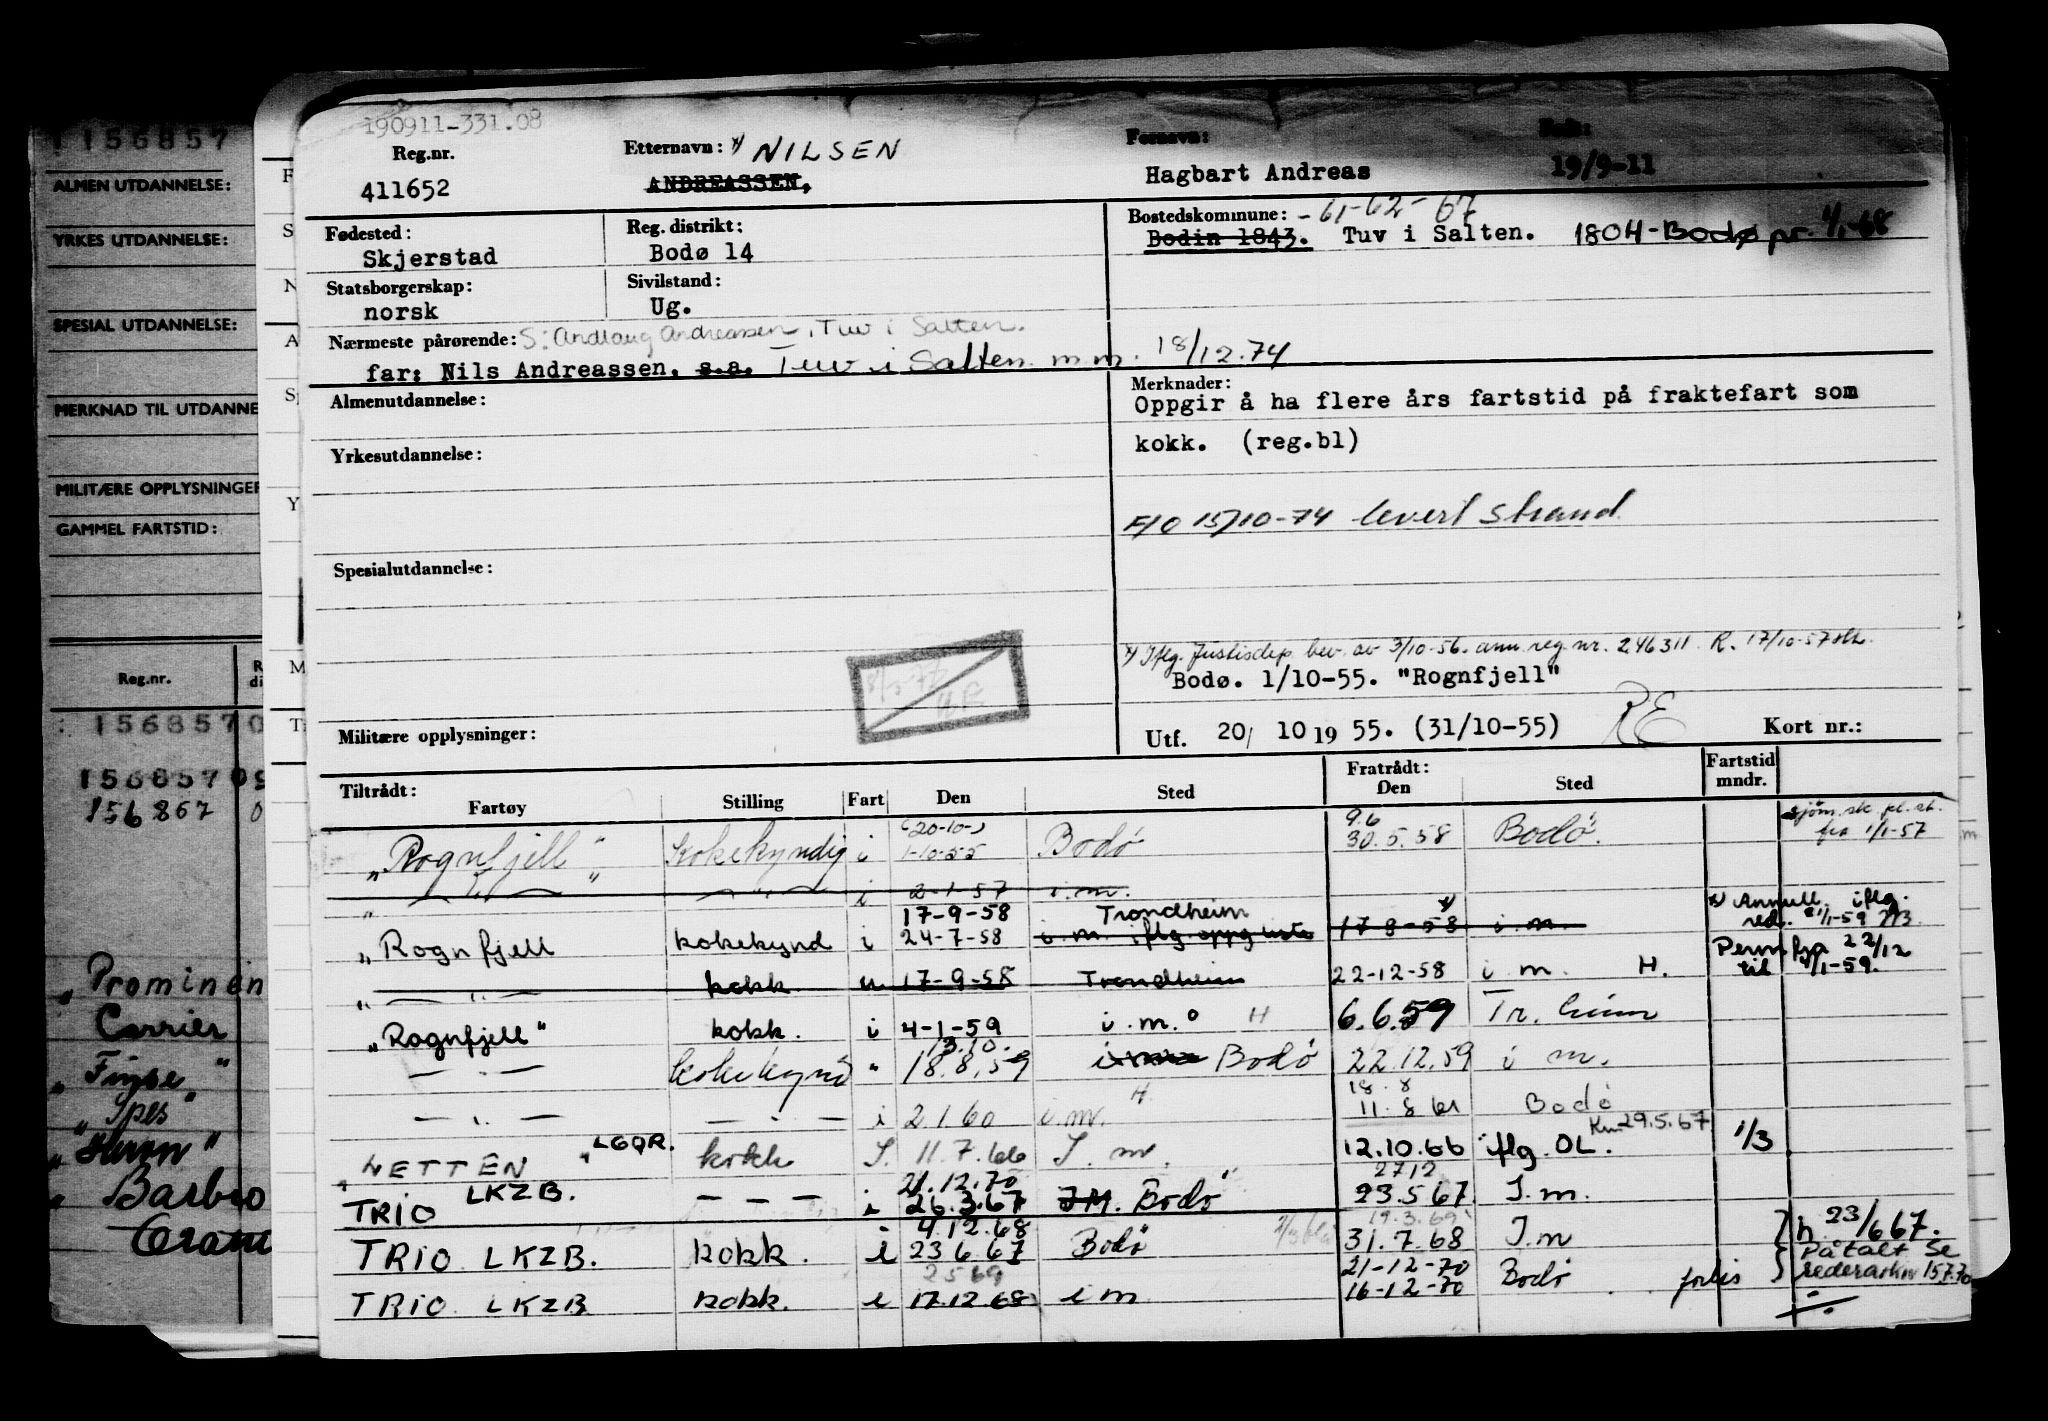 190911-331.08
Reg.nr.
411652
Etternavn: x) NILSEN
ANDREASSEN,
Fornavn:
Hagbart Andreas
Født:
19/9-11
Fødested:
Skjerstad
Reg. distrikt:
Bodø 14
Bostedskommune: -61-62-67
Bodin 1843. Tuv i Salten. 1804-Bodø pr. 1/1-68
Statsborgerskap:
norsk
Sivilstand:
Ug.
Nærmeste pårørende: S: Andlaug Andreassen, Tuv i Salten.
far: Nils Andreassen, s.a. Tuv i Salten m.m. 18/12.74
Almenutdannelse:
Merknader:
Oppgir å ha flere års fartstid på fraktefart som
kokk. (reg.bl)
Yrkesutdannelse:
F/O 15/10-74 levert Strand
Spesialutdannelse:
x) Iflg. Justisdep bev. av 3/10-56. ann. reg. nr. 246311 R. 17/10-57
Bodø. 1/10-55. "Rognfjell"
Militære opplysninger:
Utf. 20/ 10 19 55. (31/10-55) RE Kort nr.:
Tiltrådt:
Fartøy Stilling Fart Den Sted
Fratrådt:
Den Sted
Fartstid
mndr.
(20-10-) 9.6
"Rognfjell" Kokekyndig i 1-10-55 Bodø 30.5.58 Bodø.
fra 1/1-57
" — " — — " — i 2-1-57 i.m.
17-9-58 Trondheim x) x) Annull. iflg.
"Rognfjell kokekynd i 24-7-58 i.m. iflg. oppg liste 17-8-58 i.m.
red. 2/1-59
Perm fra 22/12
til 4/1-59.
" — " — kokk u 17-9-58 Trondheim 22-12-58 i m. H.
"Rognfjell" kokk. i 4-1-59 i.m. H 6.6.59 Tr.heim
13.10.
— " — Kokekynd " 18.8.59 Bodø 22.12.59 i m.
18.8
— " — — " — i 2.1.60 i.m. H. 11.8 61 Bodø
Km 29.5.67
NETTEN "LGQR. kokk I. 11.7.66 I.m. 12.10.66 iflg. OL. 1/3
21.12.70 2712
TRIO LKZB. — — — i 26.3.67 I.M. Bodø 23.5 67 I.m.
4.12.68 19.3.69
TRIO LKZB. kokk. i 23 6 67 Bodø 31.7.68 I.m h 23/6 67.
2 5 69 21-12-70
TRIO LKZB kokk. i 17.12 68 i m 16-12-70 Bodø forlis
Påtalt Se
rederarkiv 15770
1156857
ALMEN UTDANNELSE:
YRKES UTDANNELSE:
SPESIAL UTDANNELSE:
MERKNAD TIL UTDANNE
MILITÆRE OPPLYSNINGER
GAMMEL FARTSTID:
Reg.nr.
R
di
: 1568570
156857 09
156867 0
"Prominen
Carrier
"Finse"
"Spes"
" Barbro
F
S
N
A
S
Y
M
T